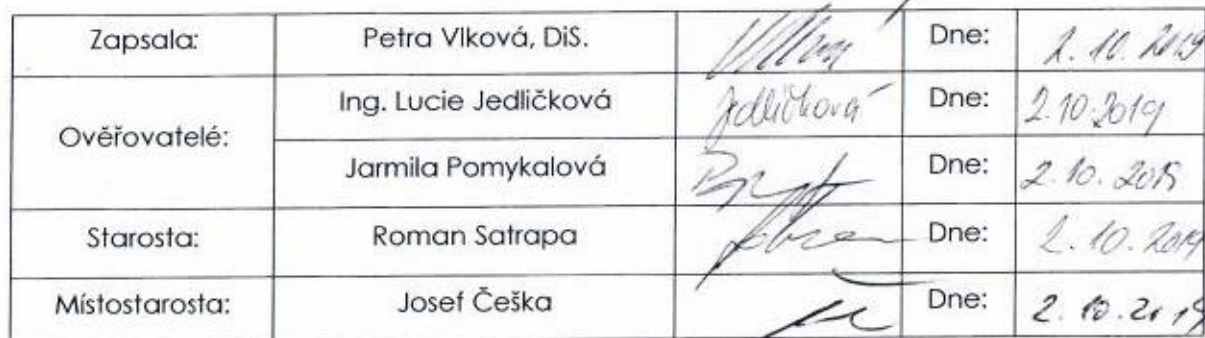 Zapsala: Petra Vlková, DiS. Dne: 2. 10. 2019
Ing. Lucie Jedličková Jedličková Dne: 2.10.2019
Ověřovatelé:
Jarmila Pomykalová Dne: 2. 10. 2019
Starosta: Roman Satrapa Dne: 2. 10. 2019
Místostarosta: Josef Češka Dne: 2. 10. 2019